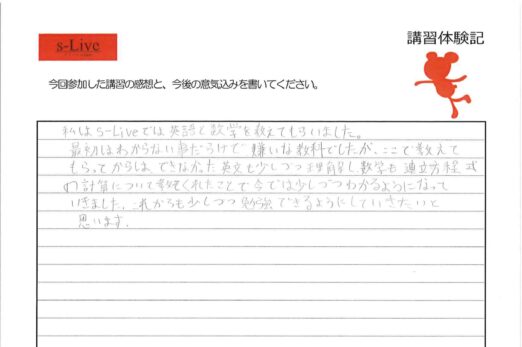 s-Live
講習体験記
今回参加した講習の感想と、今後の意気込みを書いてください。
私はs-Liveでは英語と数学を教えてもらいました。
最初はわからない事だらけで嫌いな教科でしたが、ここで教えて
もらってからは、できなかった英文も少しづつ理解し、数学も連立方程式
の計算について教えてくれたことで今では少しづつわかるようになって
いきました。これからも少しづつ勉強できるようにしていきたいと
思います。